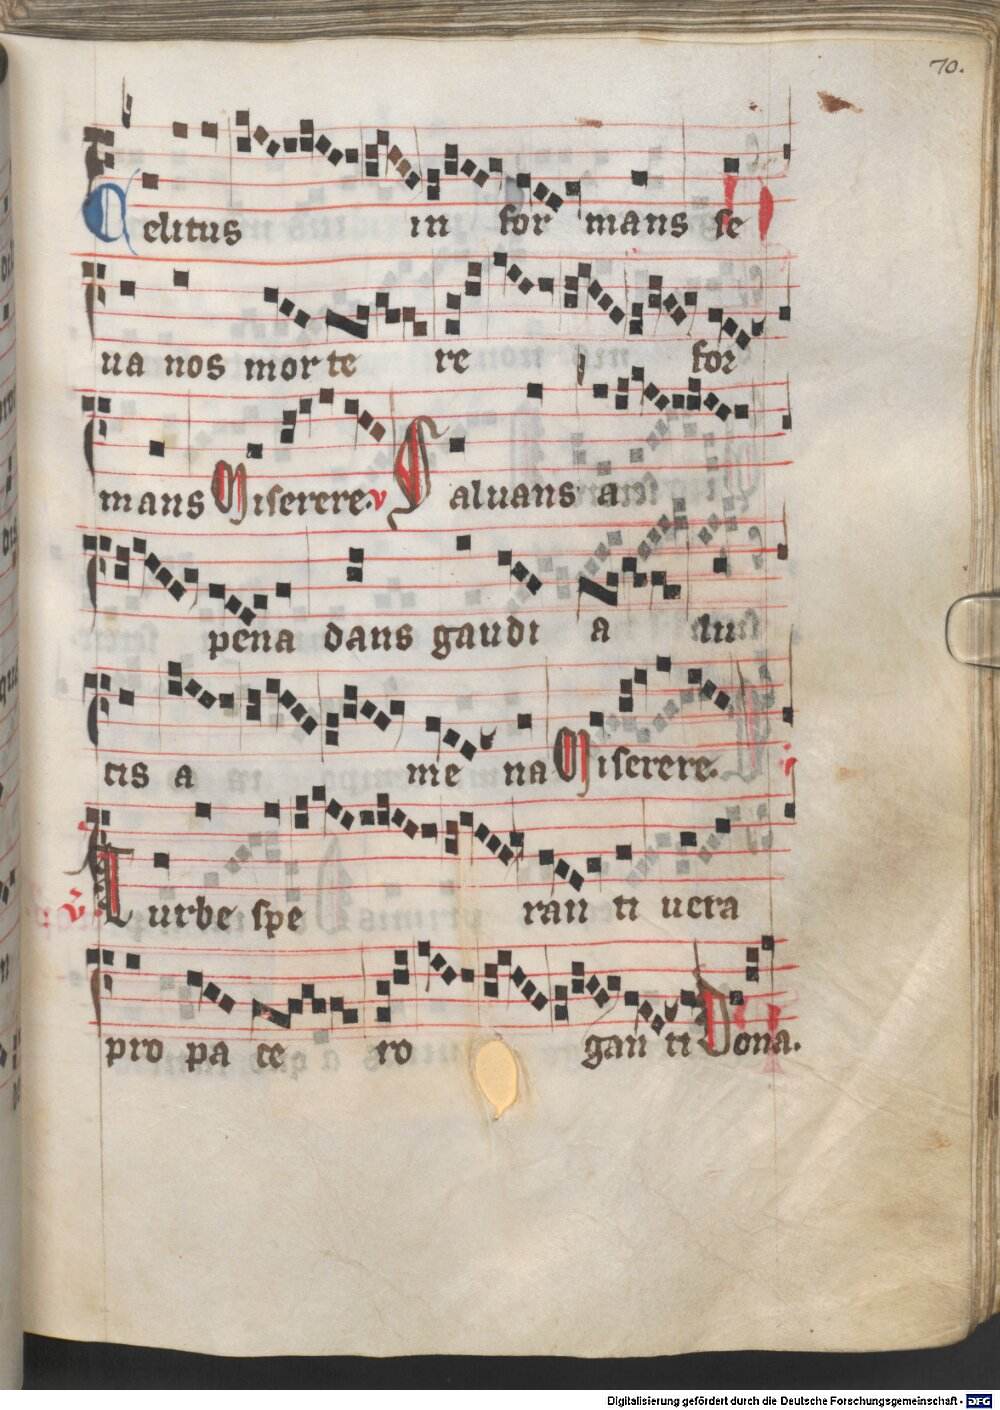 70.
Celitus in for mans se
ua nos mor te re for
mans Miserere. v Saluans a
pena dans gaudi a lu
cis a me na Miserere.
Turbe spe ran ti uera
pro pa ce ro gan ti Dona.
Digitalisierung gefördert durch die Deutsche Forschungsgemeinschaft - DFG